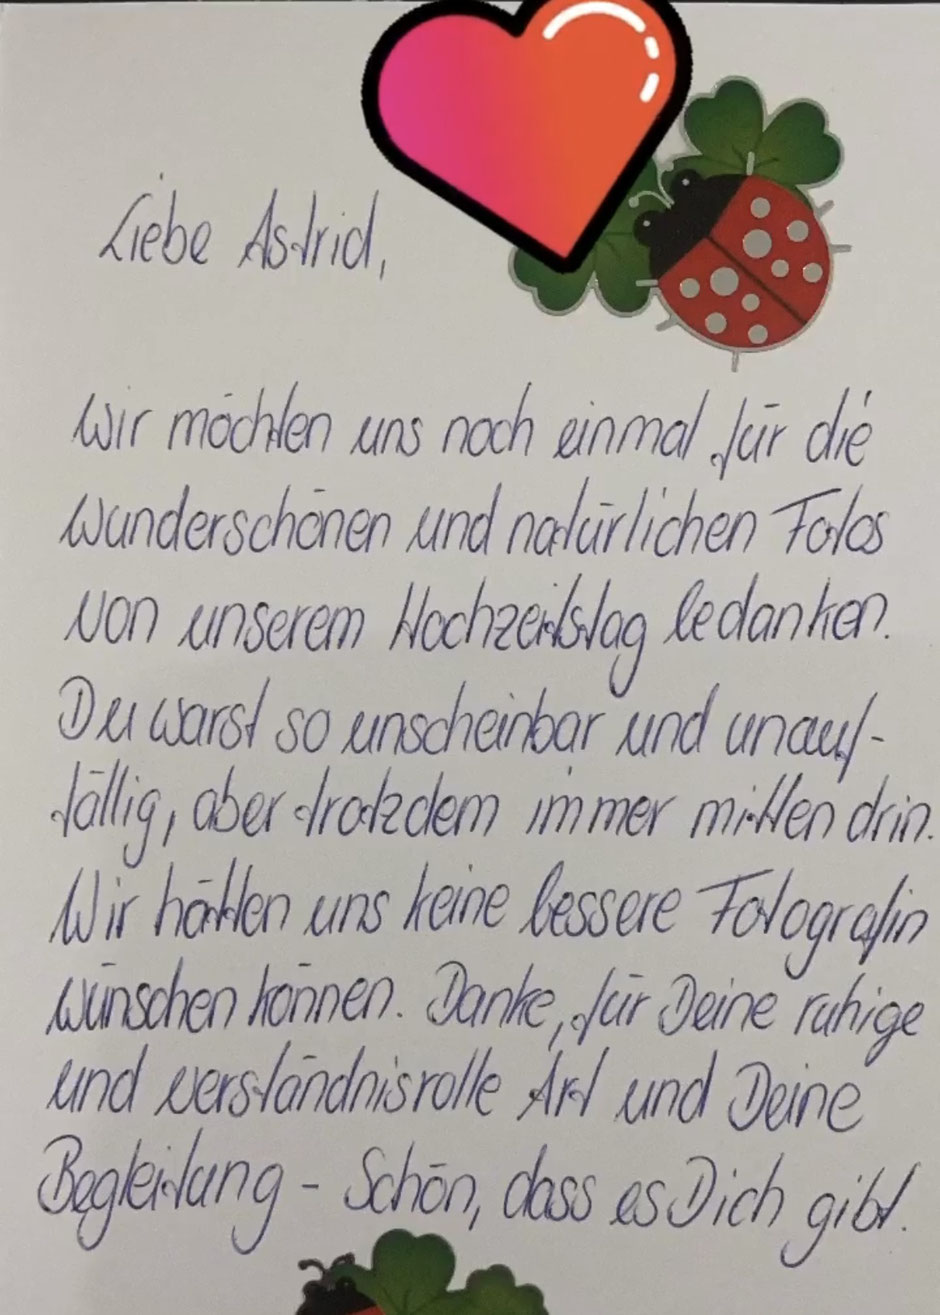 Liebe Astrid,
wir möchten uns noch einmal für die
wunderschönen und natürlichen Fotos
von unserem Hochzeitstag bedanken.
Du warst so unscheinbar und unauf-
fällig, aber trotzdem immer mitten drin.
Wir hätten uns keine bessere Fotografin
wünschen können. Danke, für Deine ruhige
und verständnisvolle Art und Deine
Begleitung - Schön, dass es Dich gibt.